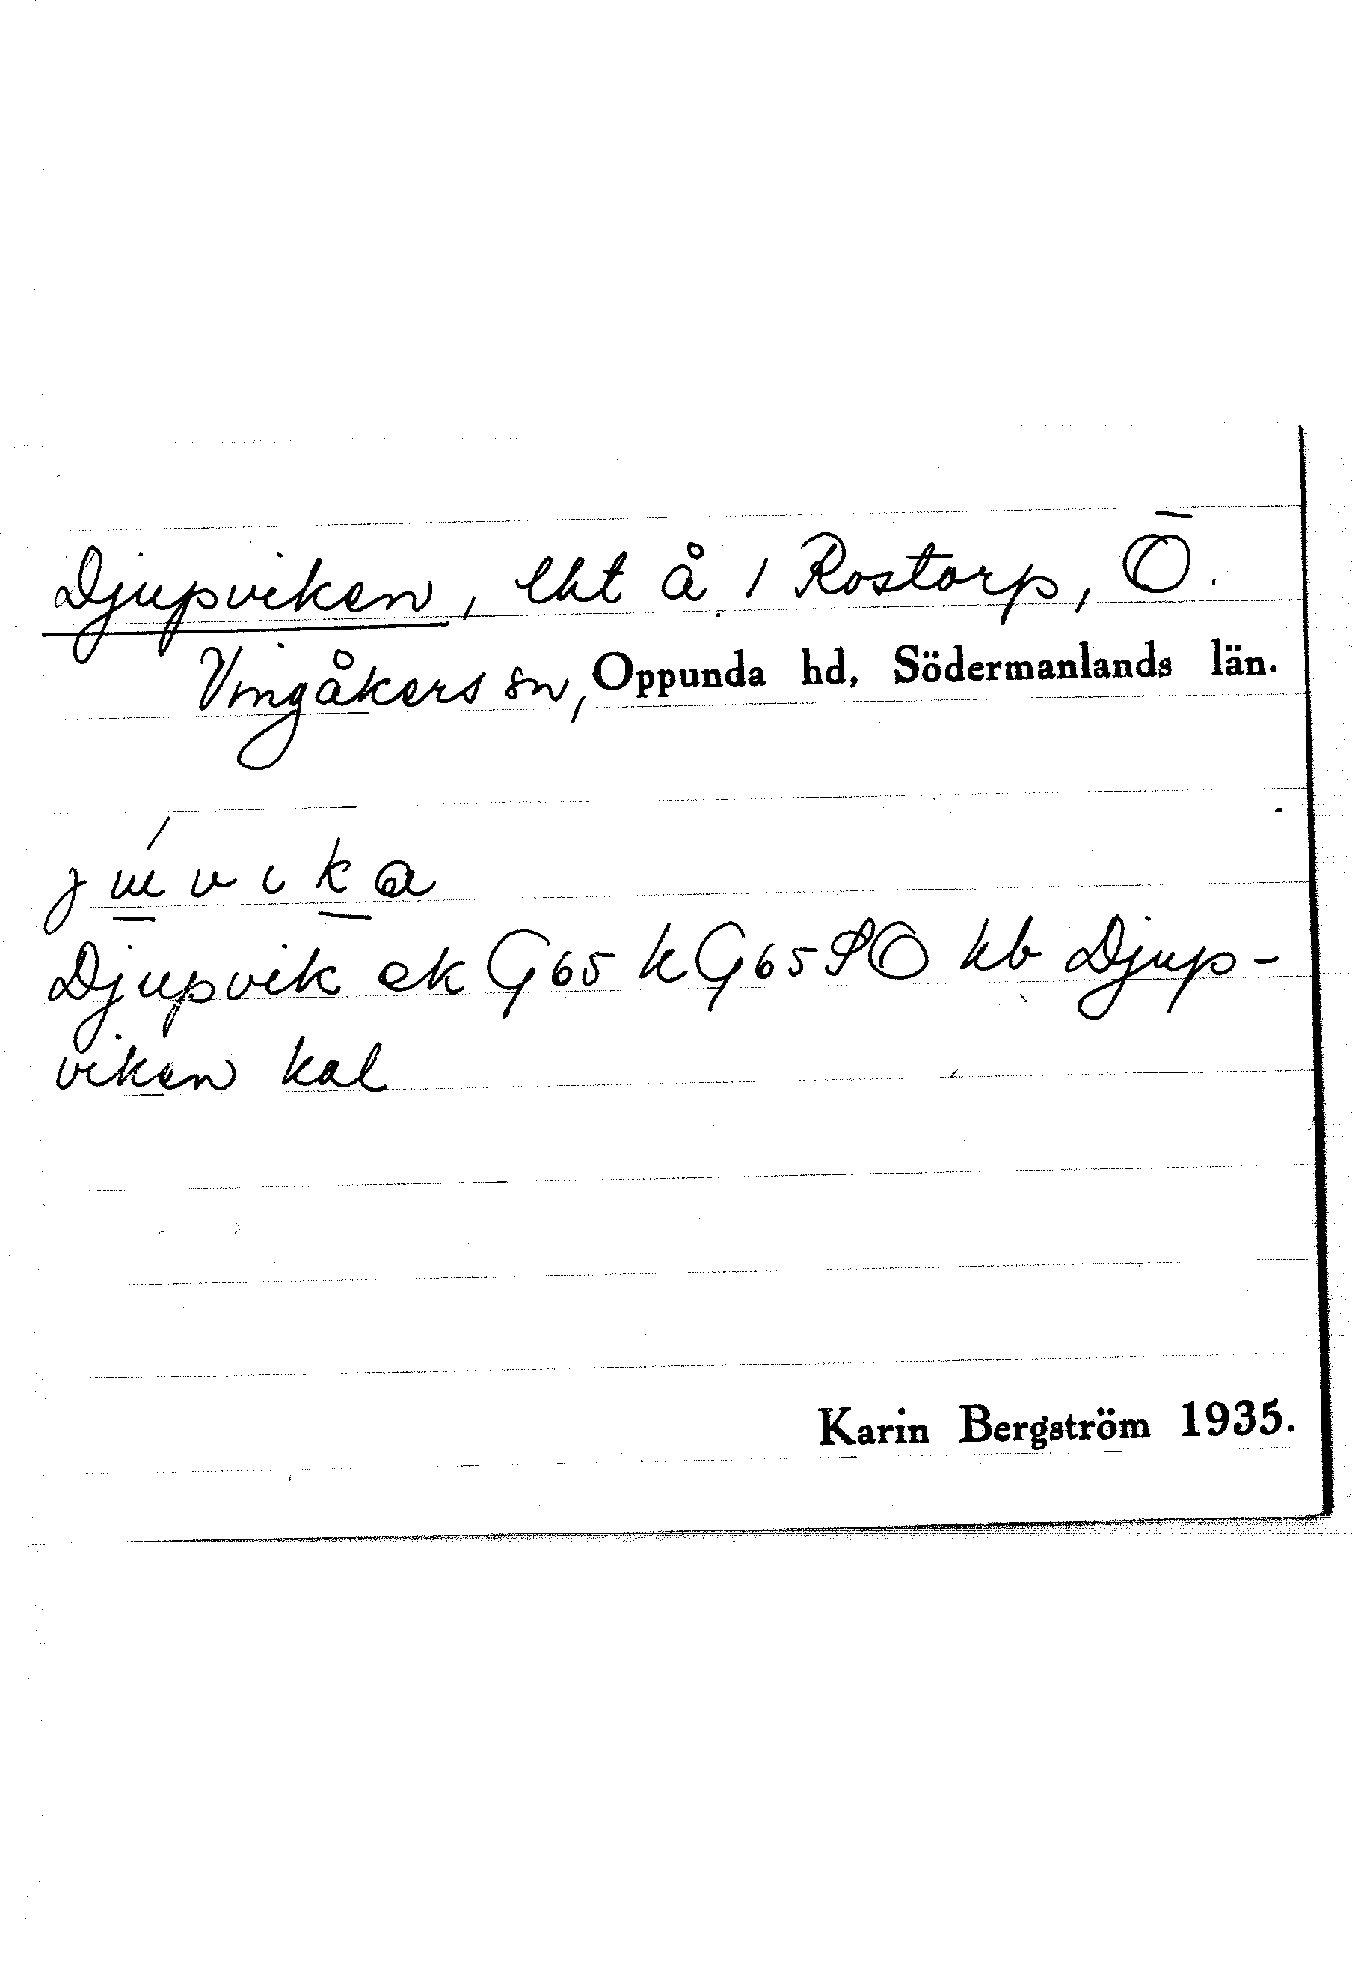 Djupviken, lht å 1 Rostorp, Ö.
Vingåkers sn, Oppunda hd, Södermanlands län.
Djupvik ek G65 hG65SO kb Djup-
viken kal
Karin Bergström 1935.